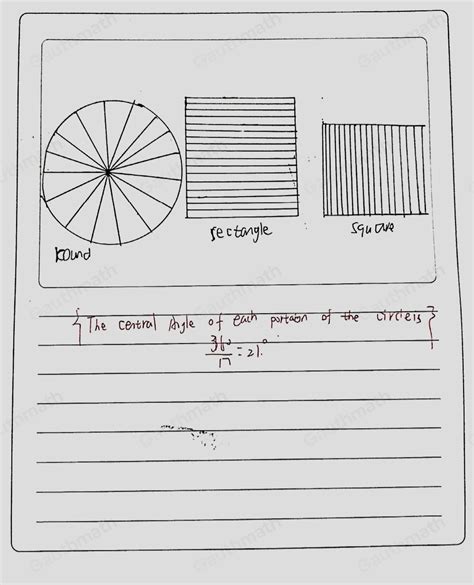 round
rectangle
square
{The central Angle of each portion of the circle is}
360/17 = 21.°